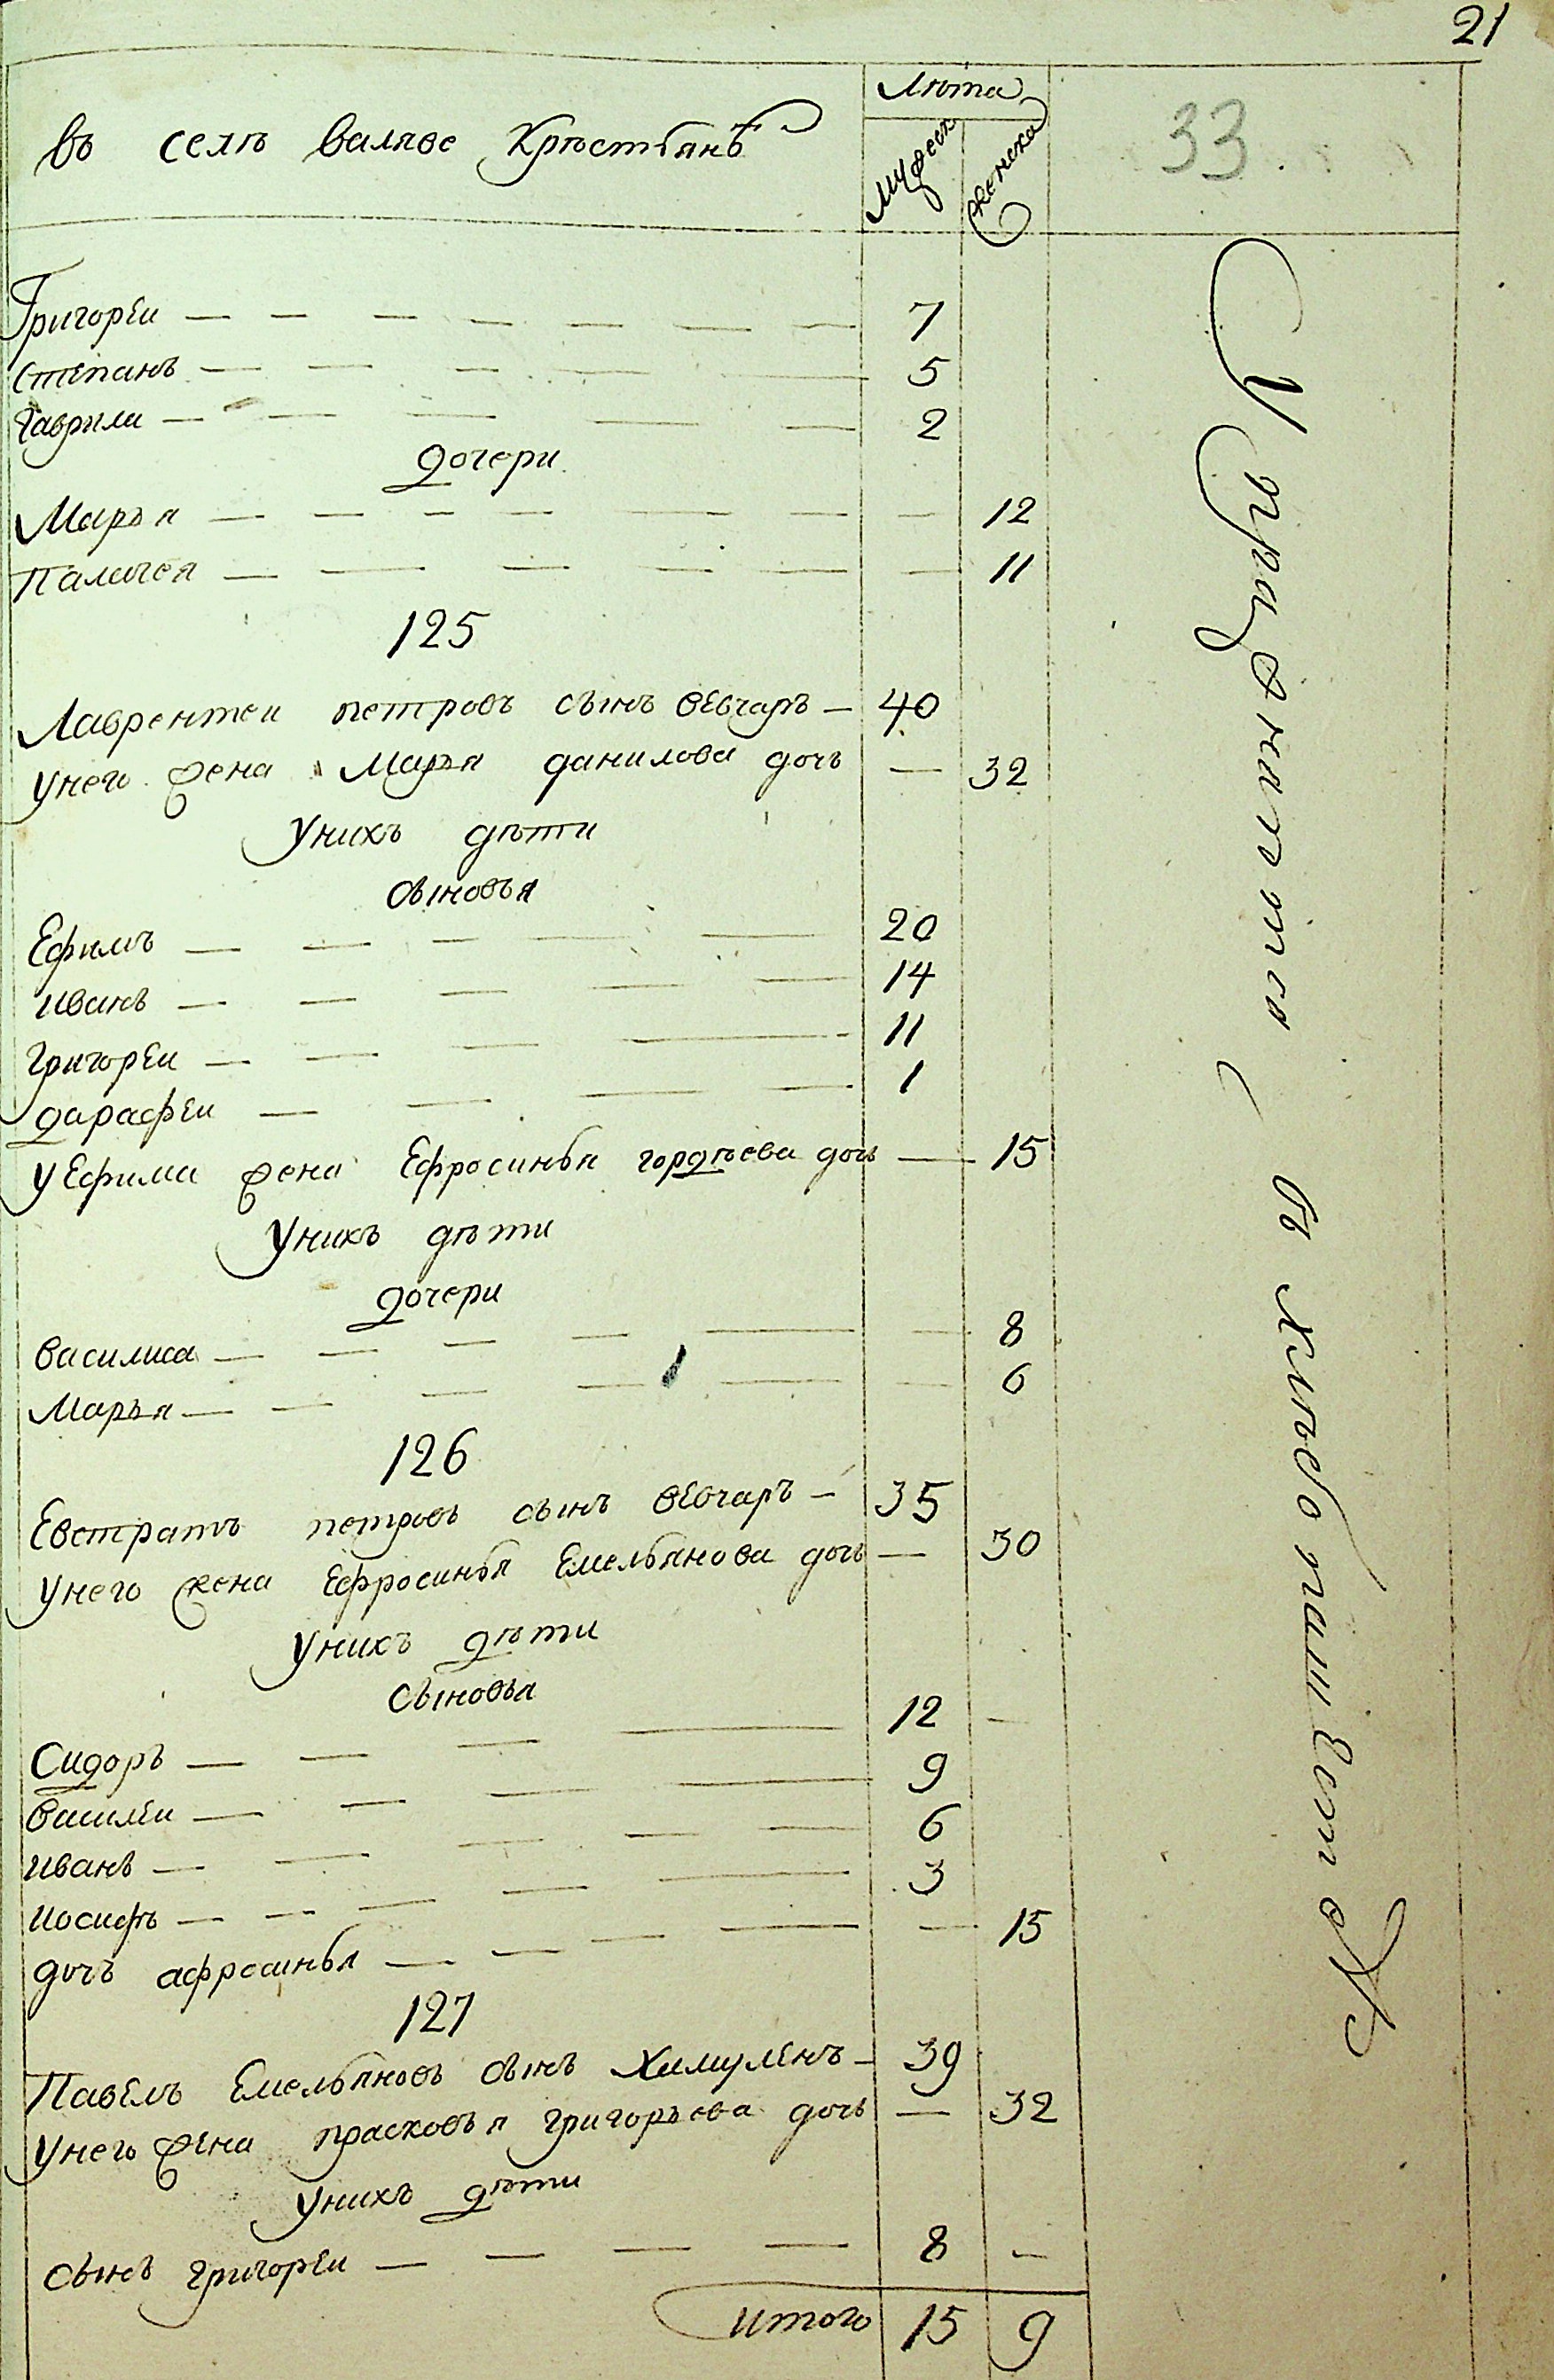 21
въ селѣ валяве Крѣстьянъ
Лѣта
мужеск
женска
33
Григореи — 7
Степанъ — 5
Гаврила — 2
дочери
Марья — 12
Палагея — 11
125
Лаврентеи петровъ сынъ вевчаръ — 40
Унего жена Марья данилова дочь — 32
Унихъ дѣти
сыновья
Ефимъ — 20
иванъ — 14
Григореи — 11
дарафеи — 1
У Ефима жена Ефросинья гордѣева дочь — 15
Унихъ дѣти
дочери
василиса — 8
Марья — 6
126
Евстратъ петровъ сынъ вевчаръ — 35
Унего жена Ефросинья Емельянова дочь — 30
Унихъ дѣти
сыновья
Сидоръ — 12 —
василеи — 9
иванъ — 6
иосифъ — 3
дочь афросинья — 15
127
Павелъ Емельяновъ сынъ — 39
Унего жена прасковья григорьева дочь — 32
Унихъ дѣти
сынъ григореи — 8 —
итого 15 9
Упражнялися въ хлебопашестве